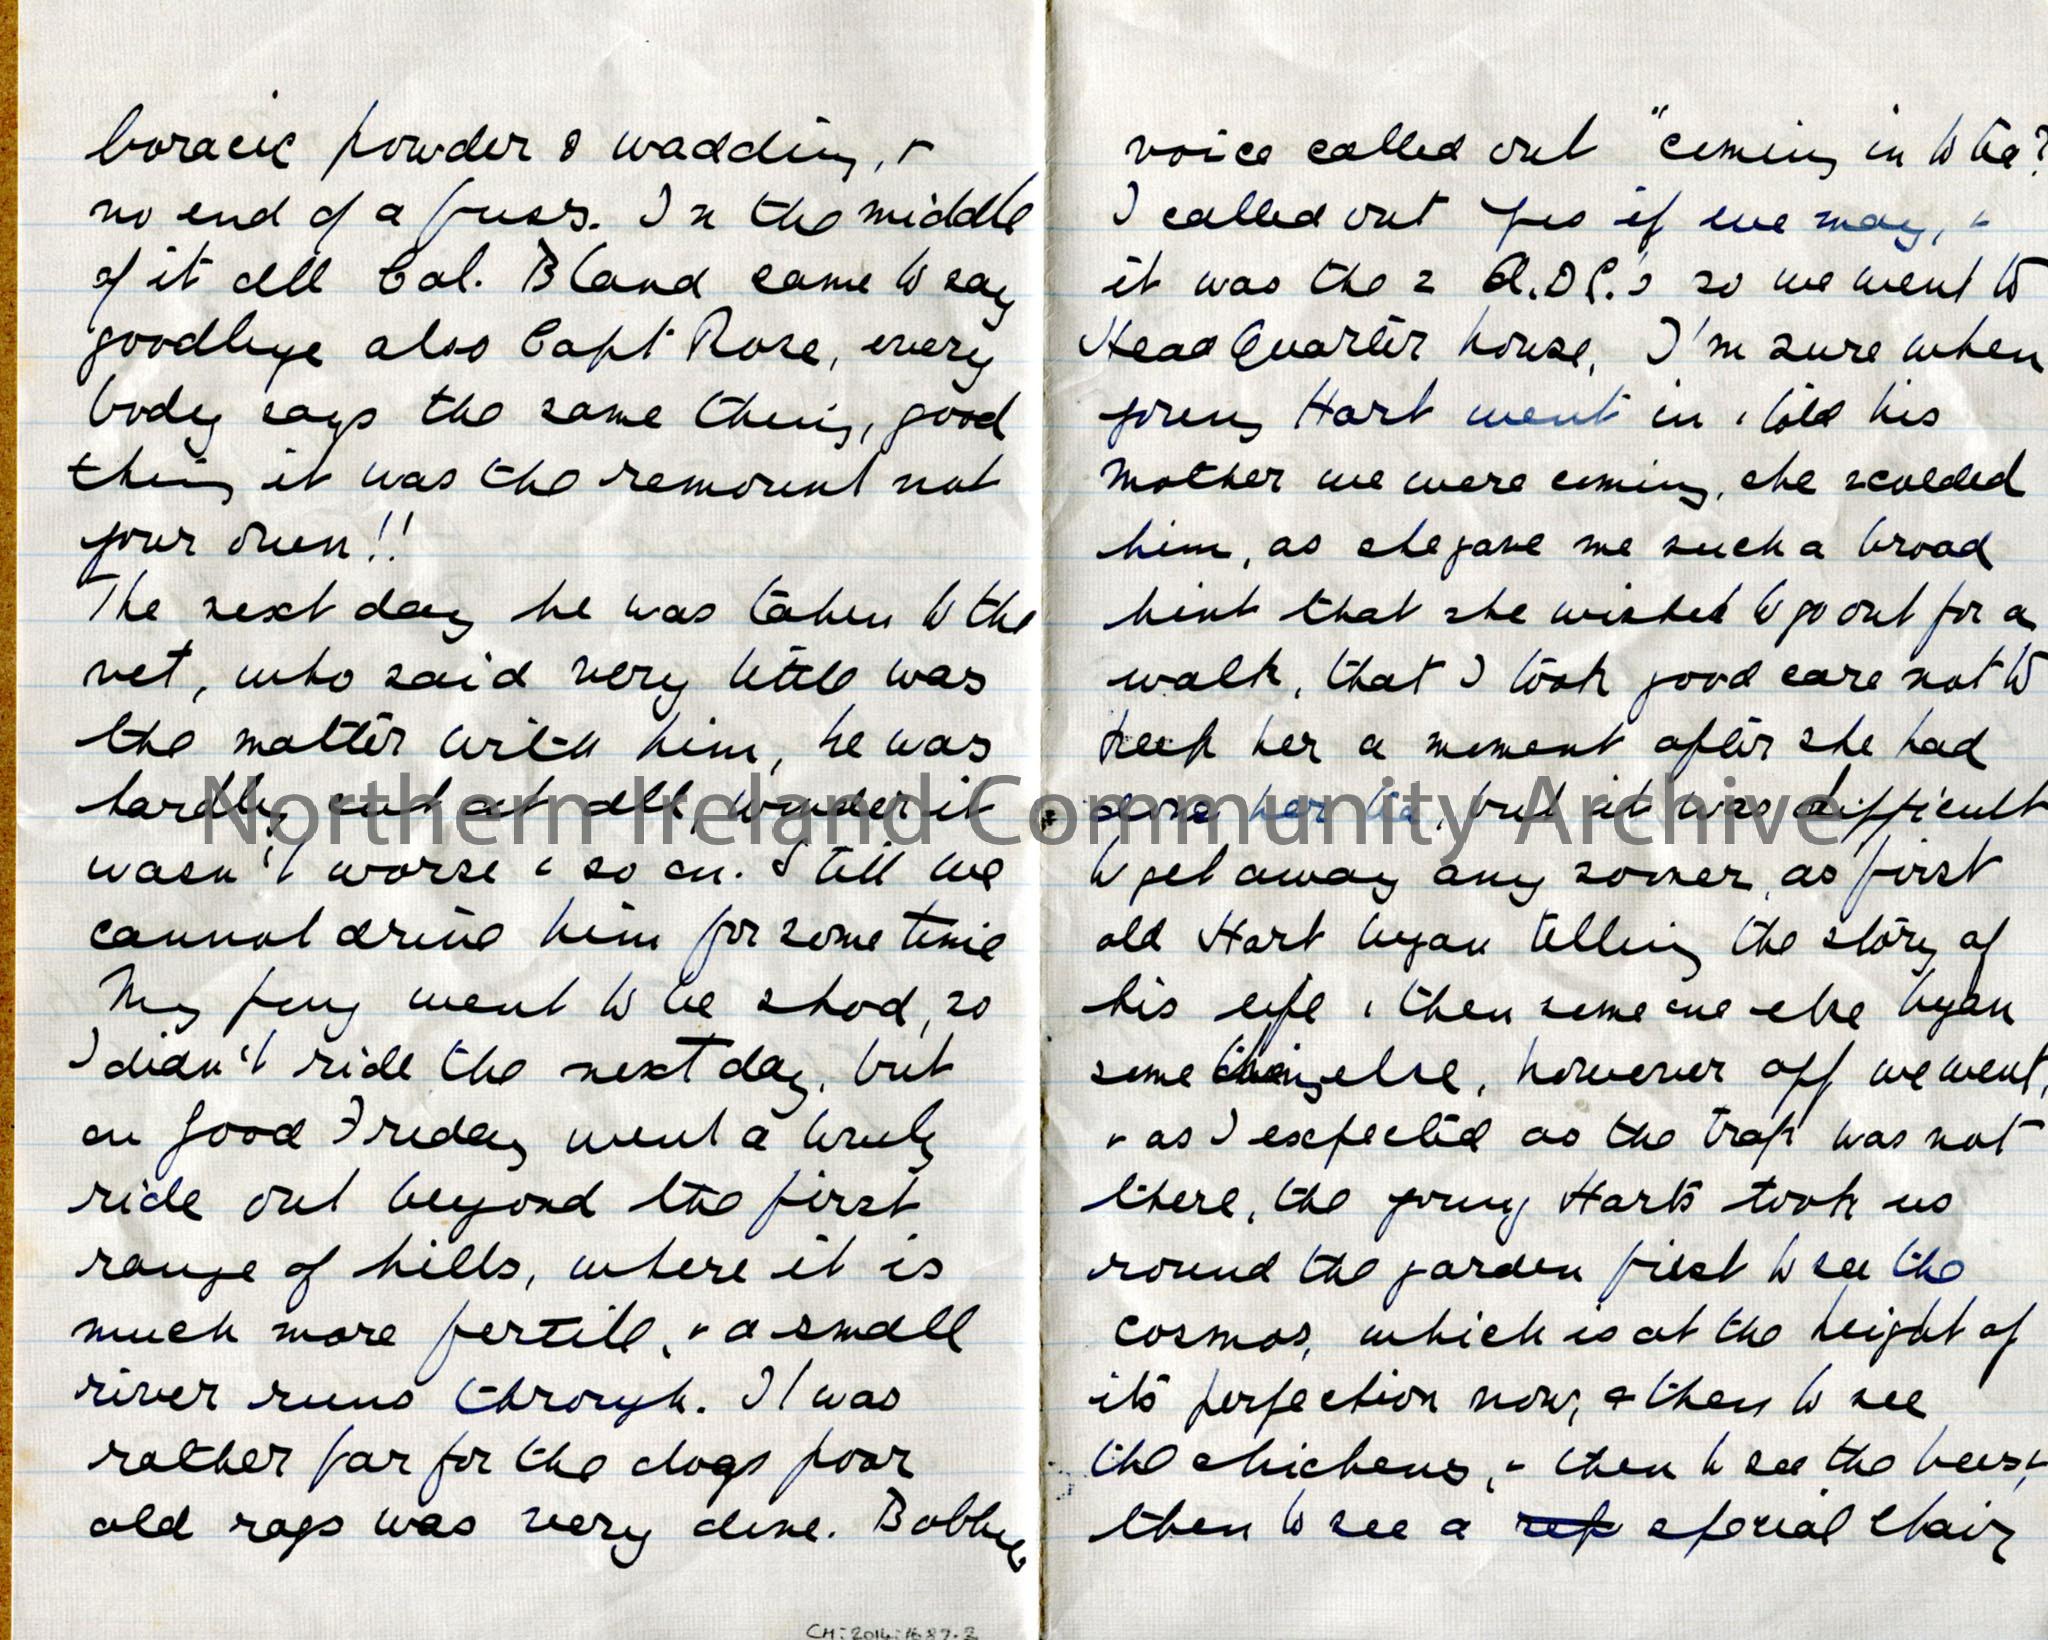 boracic powder & wadding, &
no end of a fuss. In the middle
of it all Col. Bland came to say
goodbye also Capt Rose, every
body says the same thing, good
thing it was the remount not
your own!!
The next day he was taken to the
vet, who said very little was
the matter with him, he was
hardly cut at all, wonder it
wasn't worse & so on. Still we
cannot drive him for some time
My pony went to be shod, so
I didn't ride the next day, but
on good Friday went a lovely
ride out beyond the first
range of hills, where it is
much more fertile, & a small
river runs through. It was
rather far for the dogs poor
old rags was very done. Bobby
voice called out "coming in to tea?
I called out yes if we may, &
it was the 2 A.D.C.'s so we went to
Head Quarter house, I'm sure when
young Hart went in & told his
mother we were coming, she scolded
him, as she gave me such a broad
hint that she wished to go out for a
walk, that I took good care not to
keep her a moment after she had
done her tea, but it was difficult
to get away any sooner, as first
old Hart began telling the story of
his life & then some one else began
some thing else, however off we went,
& as I expected as the trap was not
there, the young Harts took us
round the garden first to see the
cosmos, which is at the height of
its perfection now, & then to see
the chickens, & then to see the bees, &
then to see a special chair
Northern Ireland Community Archive
CM:2014:1687.2